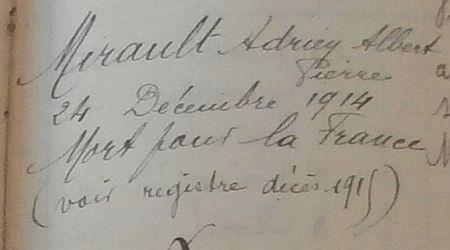 Mirault Adrien Albert
Pierre
24 Décembre 1914
Mort pour la France
(voir registre décès 1915)